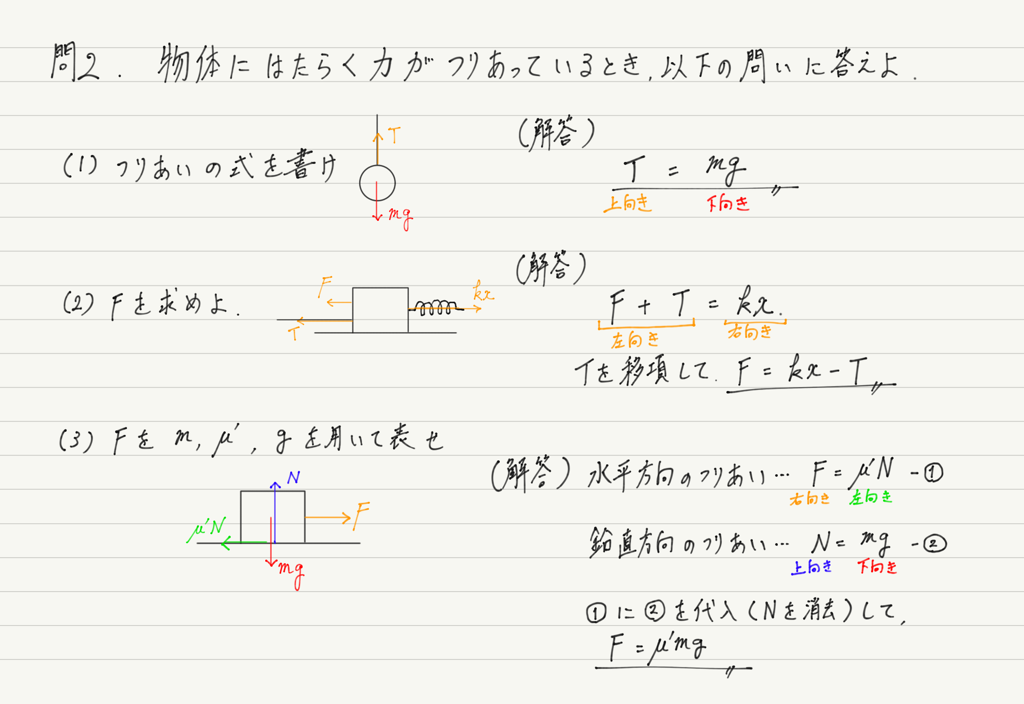 問2. 物体にはたらく力がつりあっているとき,以下の問いに答えよ.
(1) つりあいの式を書け
T
mg
(解答)
T = mg
上向き 下向き
(2) Fを求めよ.
F
kx
T
(解答)
F + T = kx.
左向き 右向き
Tを移項して. F = kx - T
(3) Fを m, μ', g を用いて表せ
N
F
μ'N
mg
(解答) 水平方向のつりあい… F = μ'N -①
右向き 左向き
鉛直方向のつりあい… N = mg -②
上向き 下向き
①に②を代入(Nを消去)して,
F = μ'mg